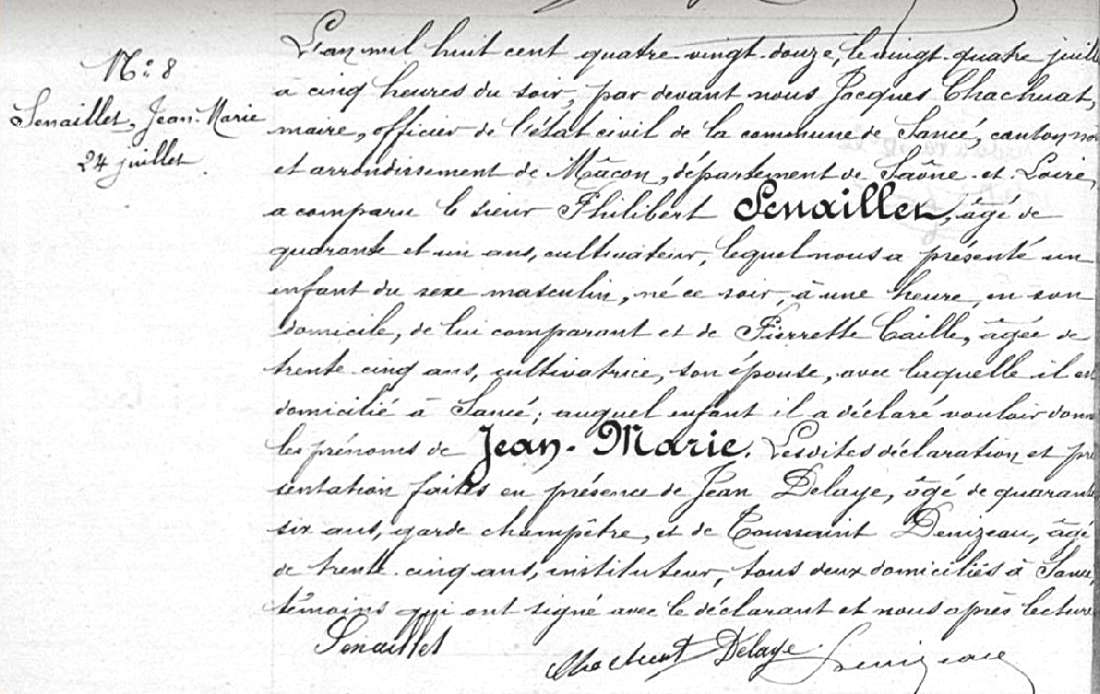 N° 8
Senaillet, Jean-Marie
24 juillet
L'an mil huit cent quatre vingt-douze, le vingt-quatre juill
à cinq heures du soir, par devant nous Jacques Chachuat,
maire, officier de l'état civil de la commune de Sancé, canton no
et arrondissement de Mâcon, département de Saône-et-Loire,
a comparu le sieur Philibert Senaillet, âgé de
quarante et un ans, cultivateur, lequel nous a présenté un
enfant du sexe masculin, né ce soir, à une heure, en son
domicile, de lui comparant et de Pierrette Caille, âgée de
trente-cinq ans, cultivatrice, son épouse, avec laquelle il es
domicilié à Sancé; auquel enfant il a déclaré vouloir donn
les prénoms de Jean-Marie. Lesdites déclaration et pré
sentation faites en présence de Jean Delaye, âgé de quarante
six ans, garde champêtre, et de Toussaint Denizeau, âgé
de trente-cinq ans, instituteur, tous deux domiciliés à Sancé,
témoins qui ont signé avec le déclarant et nous après lecture
Senaillet
Chachuat Delaye Denizeau